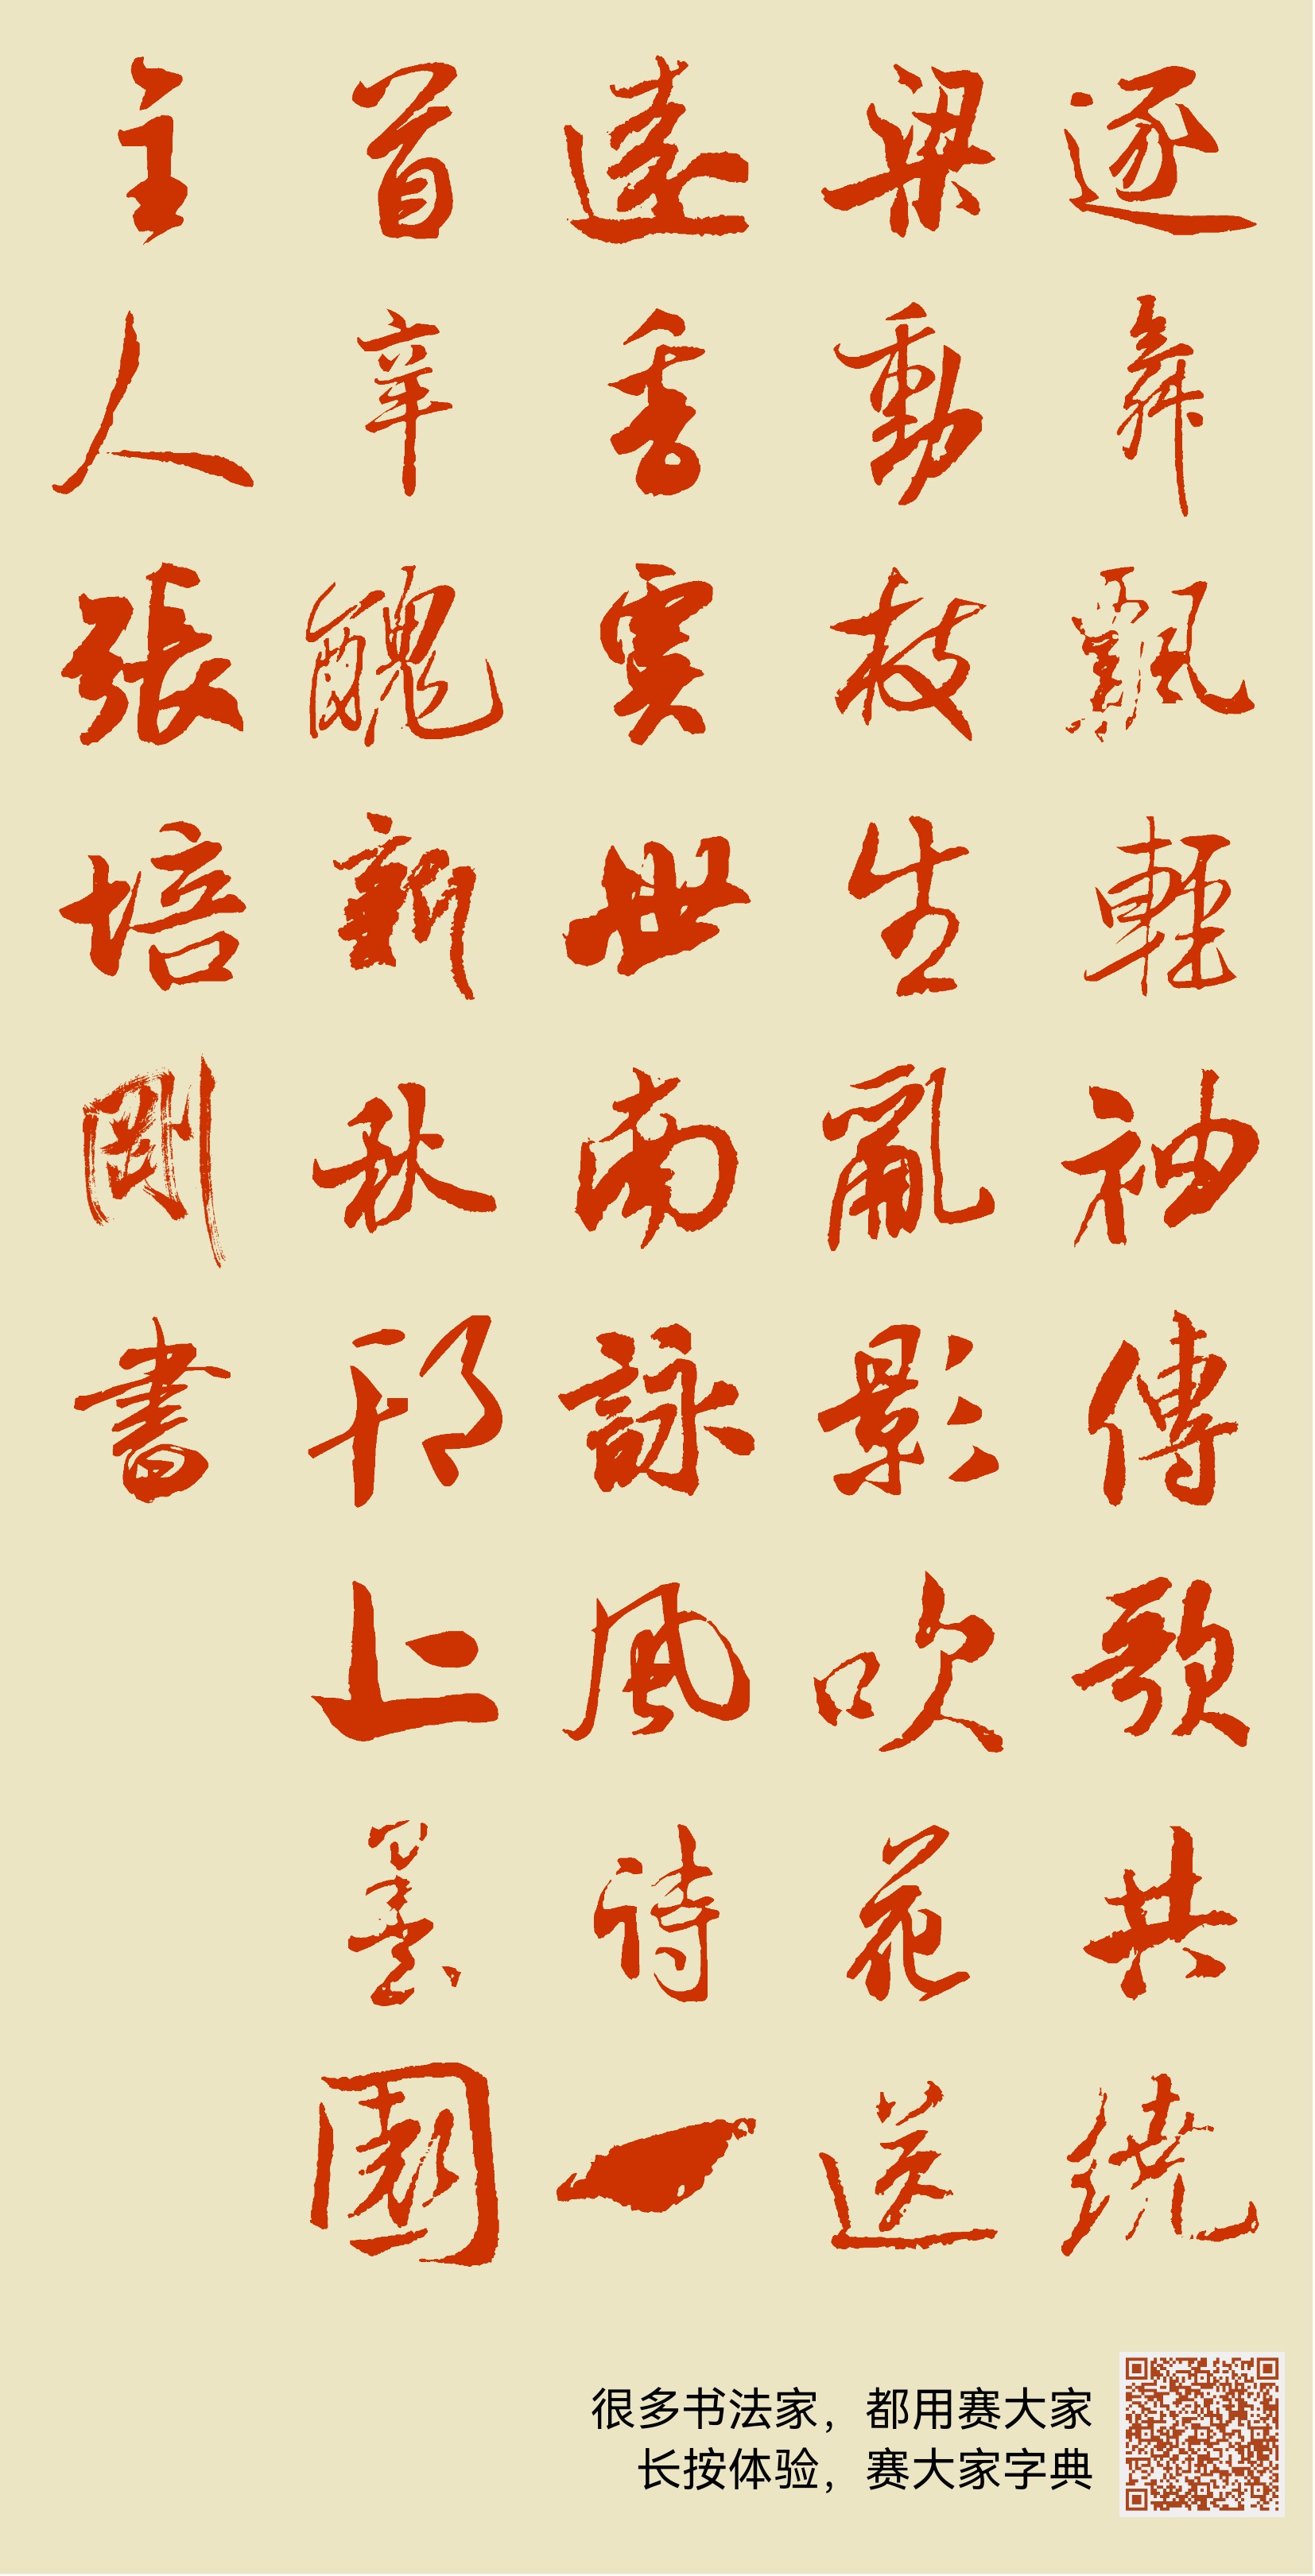 逐舞飄輕袖傳歌共繞
梁動枝生亂影吹花送
遠香虞世南詠風詩一
首辛醜新秋邗上墨園
主人張培剛書
很多书法家，都用赛大家
长按体验，赛大家字典